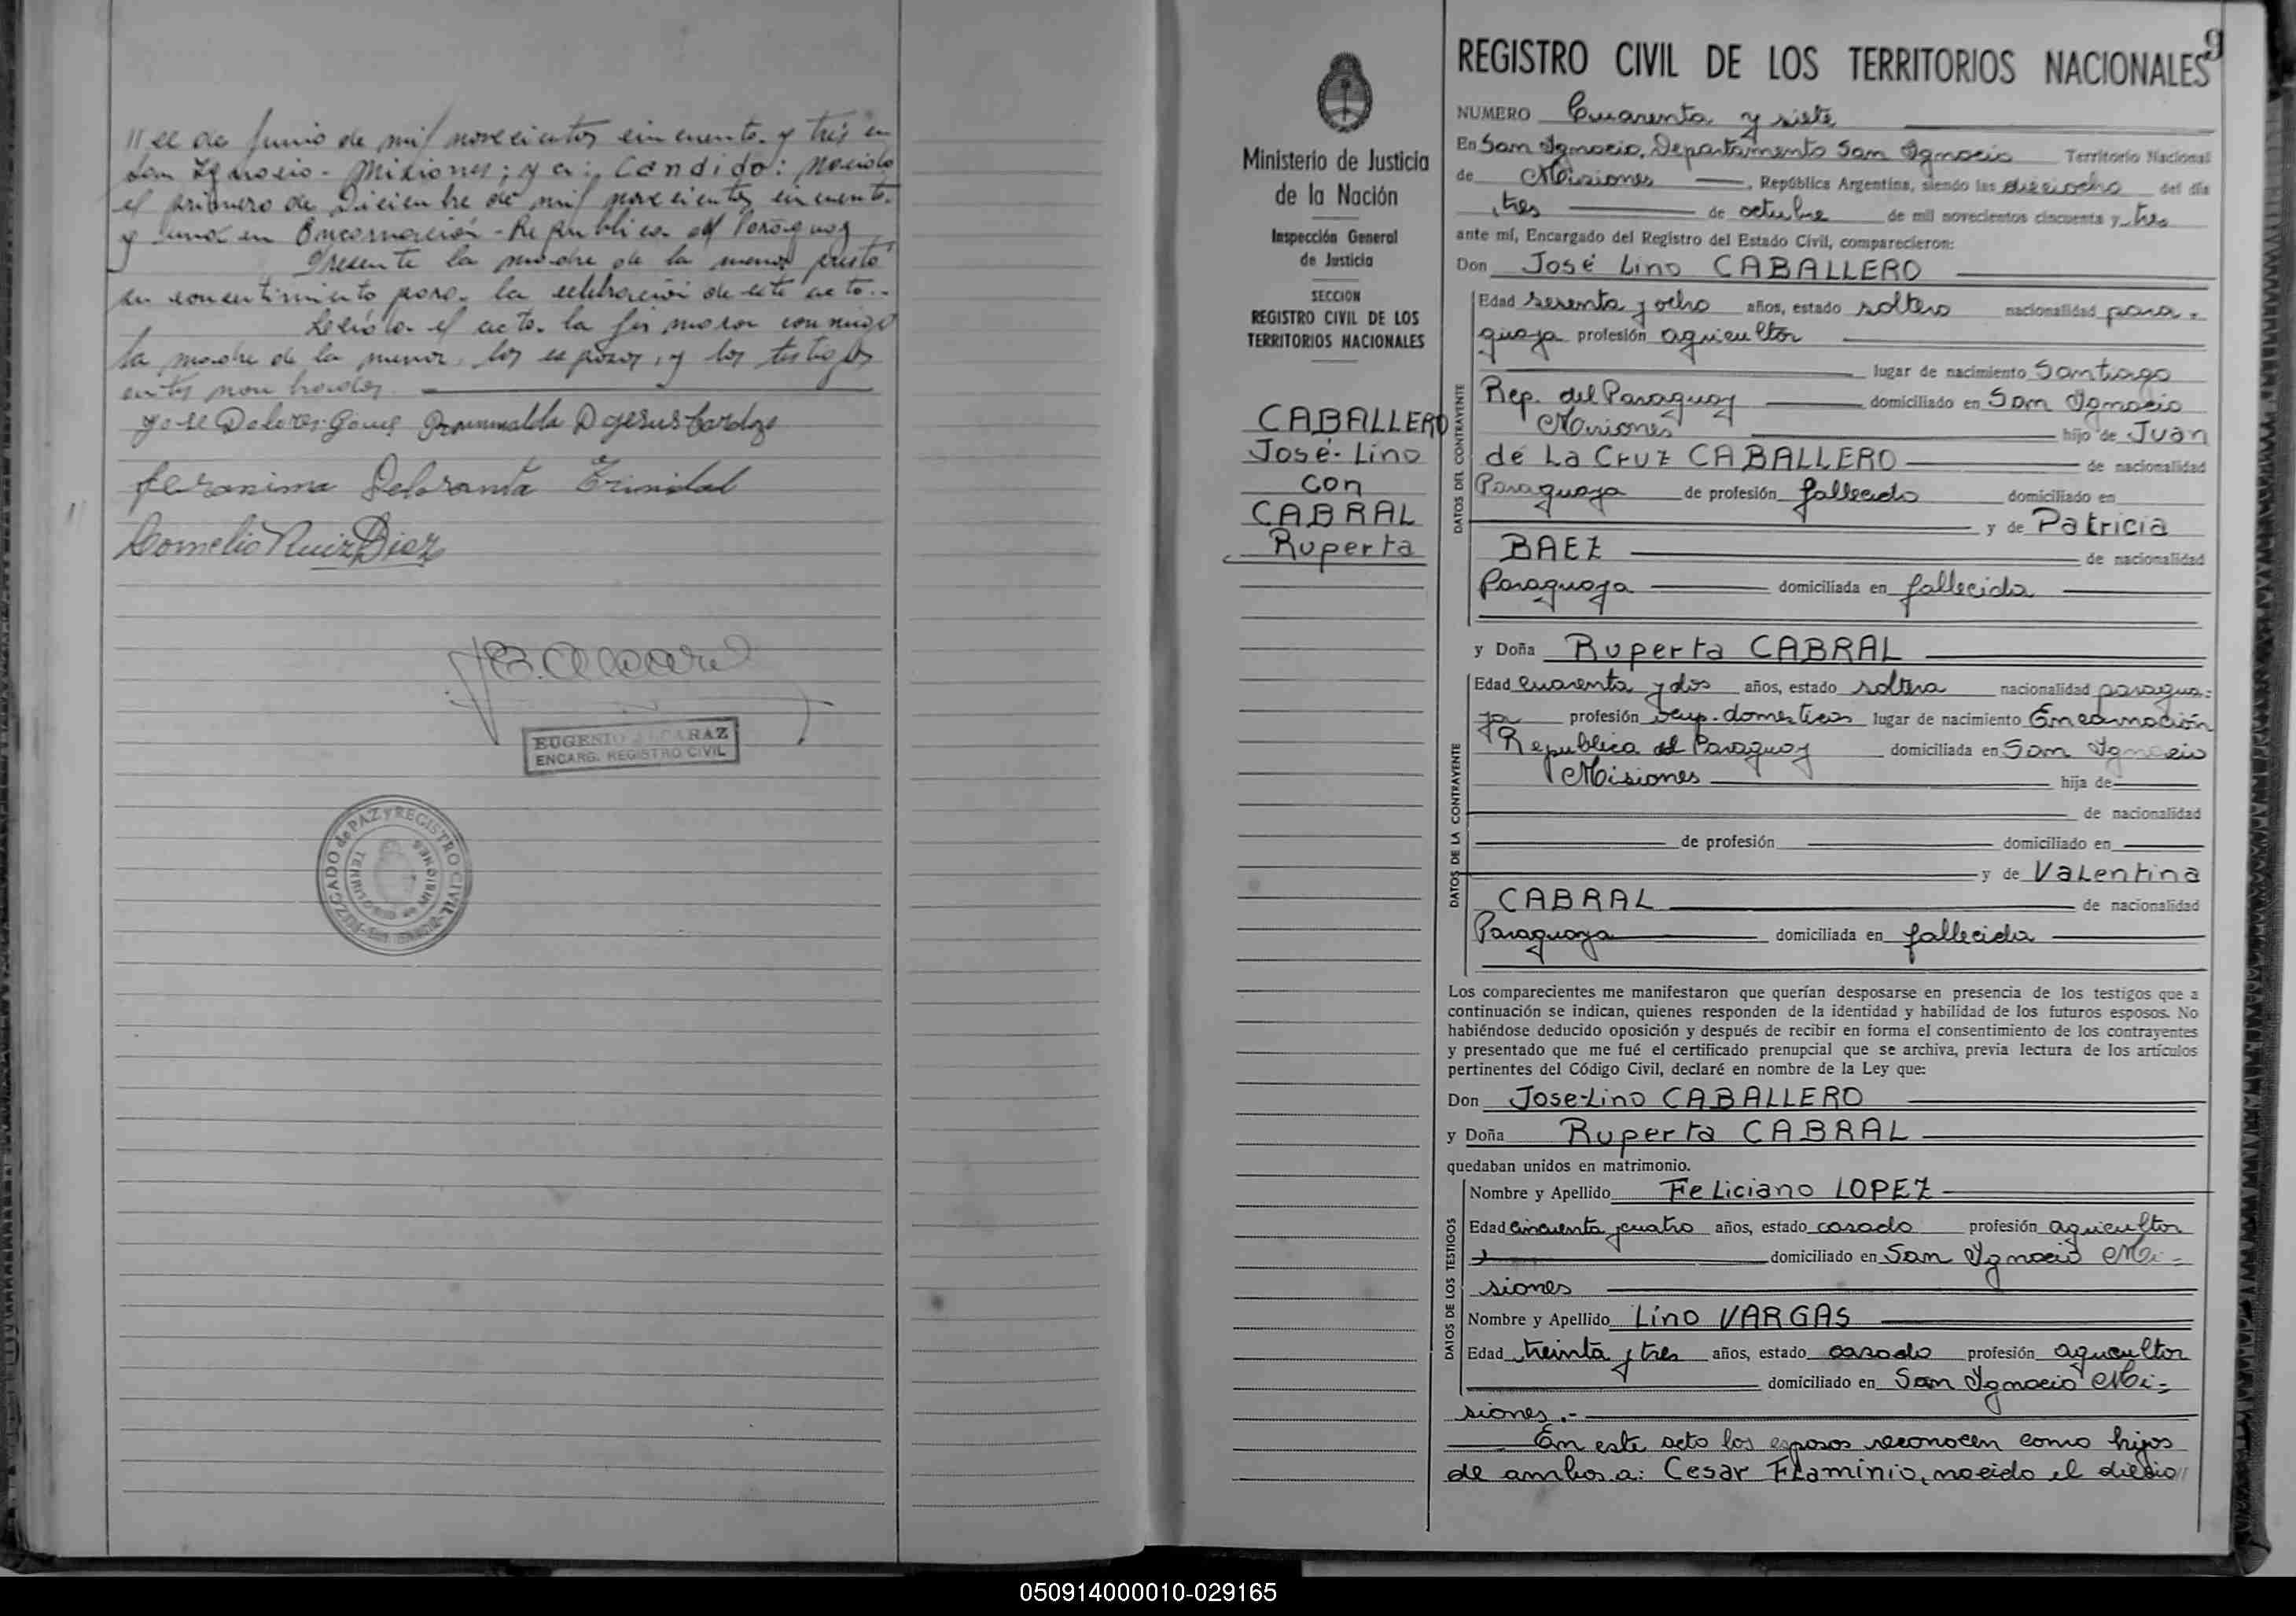 // ce de Junio de mil novecientos cincuenta y tres en
San Ignacio - Misiones; y a: Candido: nacido
el primero de Diciembre de mil novecientos cincuenta
y uno en Encarnación - Republica del Paraguay
Presente la madre de la menor prestó
su consentimiento para la celebración de este acto.-
Leída el acta la firmaron conmigo
la madre de la menor, los esposos, y los testigos
antes nombrados.
Jose Dolores Gomez D Jesus Cardozo
Jeronima Trinidad
Cornelio Ruiz Diaz
EUGENIO ALCARAZ
ENCARG. REGISTRO CIVIL
JUZGADO de PAZ y REGISTRO CIVIL - SAN IGNACIO
TERRITORIO de MISIONES
9
Ministerio de Justicia
de la Nación
Inspección General
de Justicia
SECCION
REGISTRO CIVIL DE LOS
TERRITORIOS NACIONALES
CABALLERO
José-Lino
con
CABRAL
Ruperta
REGISTRO CIVIL DE LOS TERRITORIOS NACIONALES
NUMERO Cuarenta y siete
En San Ignacio, Departamento San Ignacio Territorio Nacional
de Misiones, República Argentina, siendo las dieciocho del día
tres de octubre de mil novecientos cincuenta y tres
ante mí, Encargado del Registro del Estado Civil, comparecieron:
Don José Lino CABALLERO
DATOS DEL CONTRAYENTE
Edad sesenta y ocho años, estado soltero nacionalidad para-
guaya profesión agricultor
lugar de nacimiento Santiago
Rep. del Paraguay domiciliado en San Ignacio
Misiones hijo de Juan
de La Cruz CABALLERO de nacionalidad
Paraguaya de profesión fallecido domiciliado en
y de Patricia
BAEZ de nacionalidad
Paraguaya domiciliada en fallecida
y Doña Ruperta CABRAL
DATOS DE LA CONTRAYENTE
Edad cuarenta y dos años, estado soltera nacionalidad paragua-
ya profesión ocup. domesticas lugar de nacimiento Encarnación
Republica del Paraguay domiciliada en San Ignacio
Misiones hija de
de nacionalidad
de profesión domiciliado en
y de Valentina
CABRAL de nacionalidad
Paraguaya domiciliada en fallecida
Los comparecientes me manifestaron que querían desposarse en presencia de los testigos que a
continuación se indican, quienes responden de la identidad y habilidad de los futuros esposos. No
habiéndose deducido oposición y después de recibir en forma el consentimiento de los contrayentes
y presentado que me fué el certificado prenupcial que se archiva, previa lectura de los artículos
pertinentes del Código Civil, declaré en nombre de la Ley que:
Don Jose-Lino CABALLERO
y Doña Ruperta CABRAL
quedaban unidos en matrimonio.
DATOS DE LOS TESTIGOS
Nombre y Apellido Feliciano LOPEZ
Edad cincuenta y cuatro años, estado casado profesión agricultor
domiciliado en San Ignacio Mi-
siones
Nombre y Apellido Lino VARGAS
Edad treinta y tres años, estado casado profesión agricultor
domiciliado en San Ignacio Mi-
siones.-
En este acto los esposos reconocen como hijos
de ambos a: Cesar Flaminio, nacido el diecio //
050914000010-029165